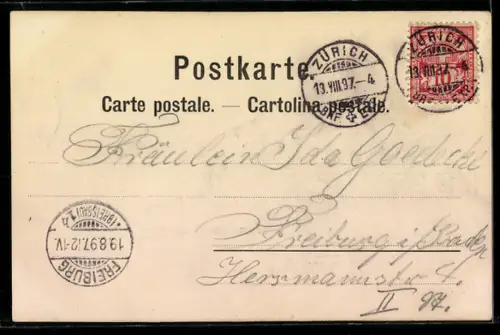 ZÜRICH
13.VIII.97.-4
ZÜRICH
13.VIII.97.-4
10
Postkarte.
Carte postale. — Cartolina postale.
Fräulein Ida Goedecke
Freiburg i/Baden
Herrmannstr 4.
II 97.
FREIBURG
19.8.97.12-1V.